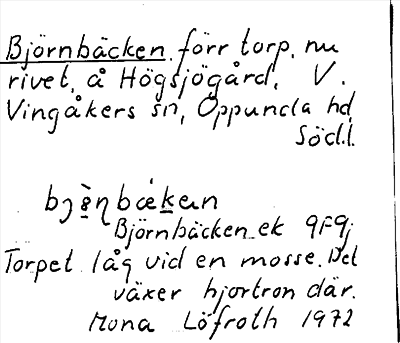 Björnbäcken, förr torp, nu
rivet, å Högsjögård, V.
Vingåkers sn, Oppunda hd
Södl.
Björnbäcken ek 9F9j
Torpet låg vid en mosse. Det
växer hjortron där.
Mona Löfroth 1972